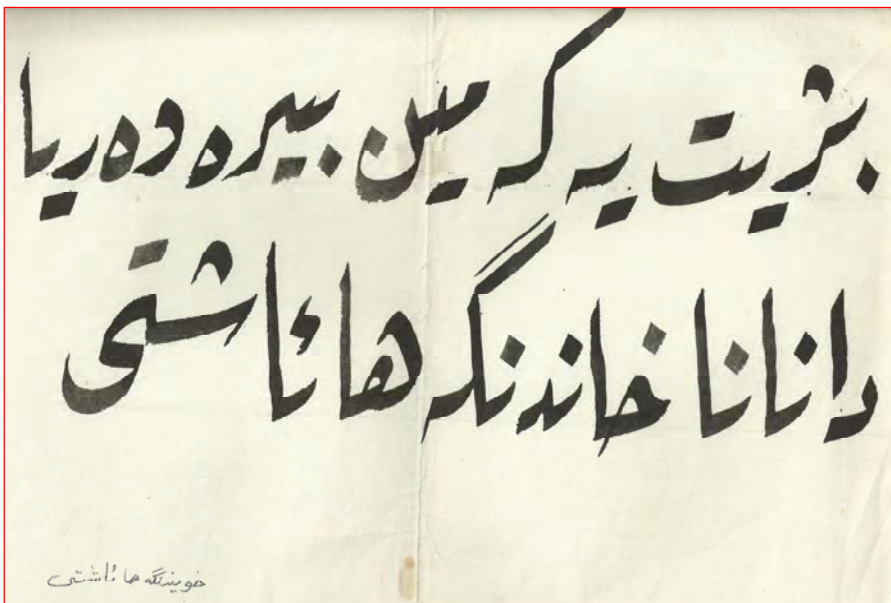 بژیت یه که مین بیره وه ریا
دانانا خاندنگه ها ئاشتی
خویندنگه ها ئاشتی